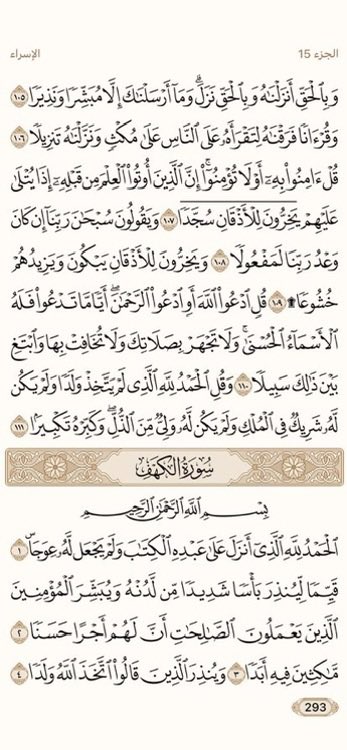 الجزء 15 الإسراء
وَبِٱلْحَقِّ أَنزَلْنَٰهُ وَبِٱلْحَقِّ نَزَلَ ۗ وَمَآ أَرْسَلْنَٰكَ إِلَّا مُبَشِّرًا وَنَذِيرًا ١٠٥
وَقُرْءَانًا فَرَقْنَٰهُ لِتَقْرَأَهُۥ عَلَى ٱلنَّاسِ عَلَىٰ مُكْثٍ وَنَزَّلْنَٰهُ تَنزِيلًا ١٠٦
قُلْ ءَامِنُوا۟ بِهِۦٓ أَوْ لَا تُؤْمِنُوٓا۟ ۚ إِنَّ ٱلَّذِينَ أُوتُوا۟ ٱلْعِلْمَ مِن قَبْلِهِۦٓ إِذَا يُتْلَىٰ
عَلَيْهِمْ يَخِرُّونَ لِلْأَذْقَانِ سُجَّدًا ١٠٧ وَيَقُولُونَ سُبْحَٰنَ رَبِّنَآ إِن كَانَ
وَعْدُ رَبِّنَا لَمَفْعُولًا ١٠٨ وَيَخِرُّونَ لِلْأَذْقَانِ يَبْكُونَ وَيَزِيدُهُمْ
خُشُوعًا ۩ ١٠٩ قُلِ ٱدْعُوا۟ ٱللَّهَ أَوِ ٱدْعُوا۟ ٱلرَّحْمَٰنَ ۖ أَيًّا مَّا تَدْعُوا۟ فَلَهُ
ٱلْأَسْمَآءُ ٱلْحُسْنَىٰ ۚ وَلَا تَجْهَرْ بِصَلَاتِكَ وَلَا تُخَافِتْ بِهَا وَٱبْتَغِ
بَيْنَ ذَٰلِكَ سَبِيلًا ١١٠ وَقُلِ ٱلْحَمْدُ لِلَّهِ ٱلَّذِى لَمْ يَتَّخِذْ وَلَدًا وَلَمْ يَكُن
لَّهُۥ شَرِيكٌ فِى ٱلْمُلْكِ وَلَمْ يَكُن لَّهُۥ وَلِىٌّ مِّنَ ٱلذُّلِّ ۖ وَكَبِّرْهُ تَكْبِيرًۢا ١١١
سُورَةُ الكَهْفِ
بِسْمِ ٱللَّهِ ٱلرَّحْمَٰنِ ٱلرَّحِيمِ
ٱلْحَمْدُ لِلَّهِ ٱلَّذِىٓ أَنزَلَ عَلَىٰ عَبْدِهِ ٱلْكِتَٰبَ وَلَمْ يَجْعَل لَّهُۥ عِوَجَا ۜ ١
قَيِّمًا لِّيُنذِرَ بَأْسًا شَدِيدًا مِّن لَّدُنْهُ وَيُبَشِّرَ ٱلْمُؤْمِنِينَ
ٱلَّذِينَ يَعْمَلُونَ ٱلصَّٰلِحَٰتِ أَنَّ لَهُمْ أَجْرًا حَسَنًا ٢
مَّٰكِثِينَ فِيهِ أَبَدًا ٣ وَيُنذِرَ ٱلَّذِينَ قَالُوا۟ ٱتَّخَذَ ٱللَّهُ وَلَدًا ٤
293